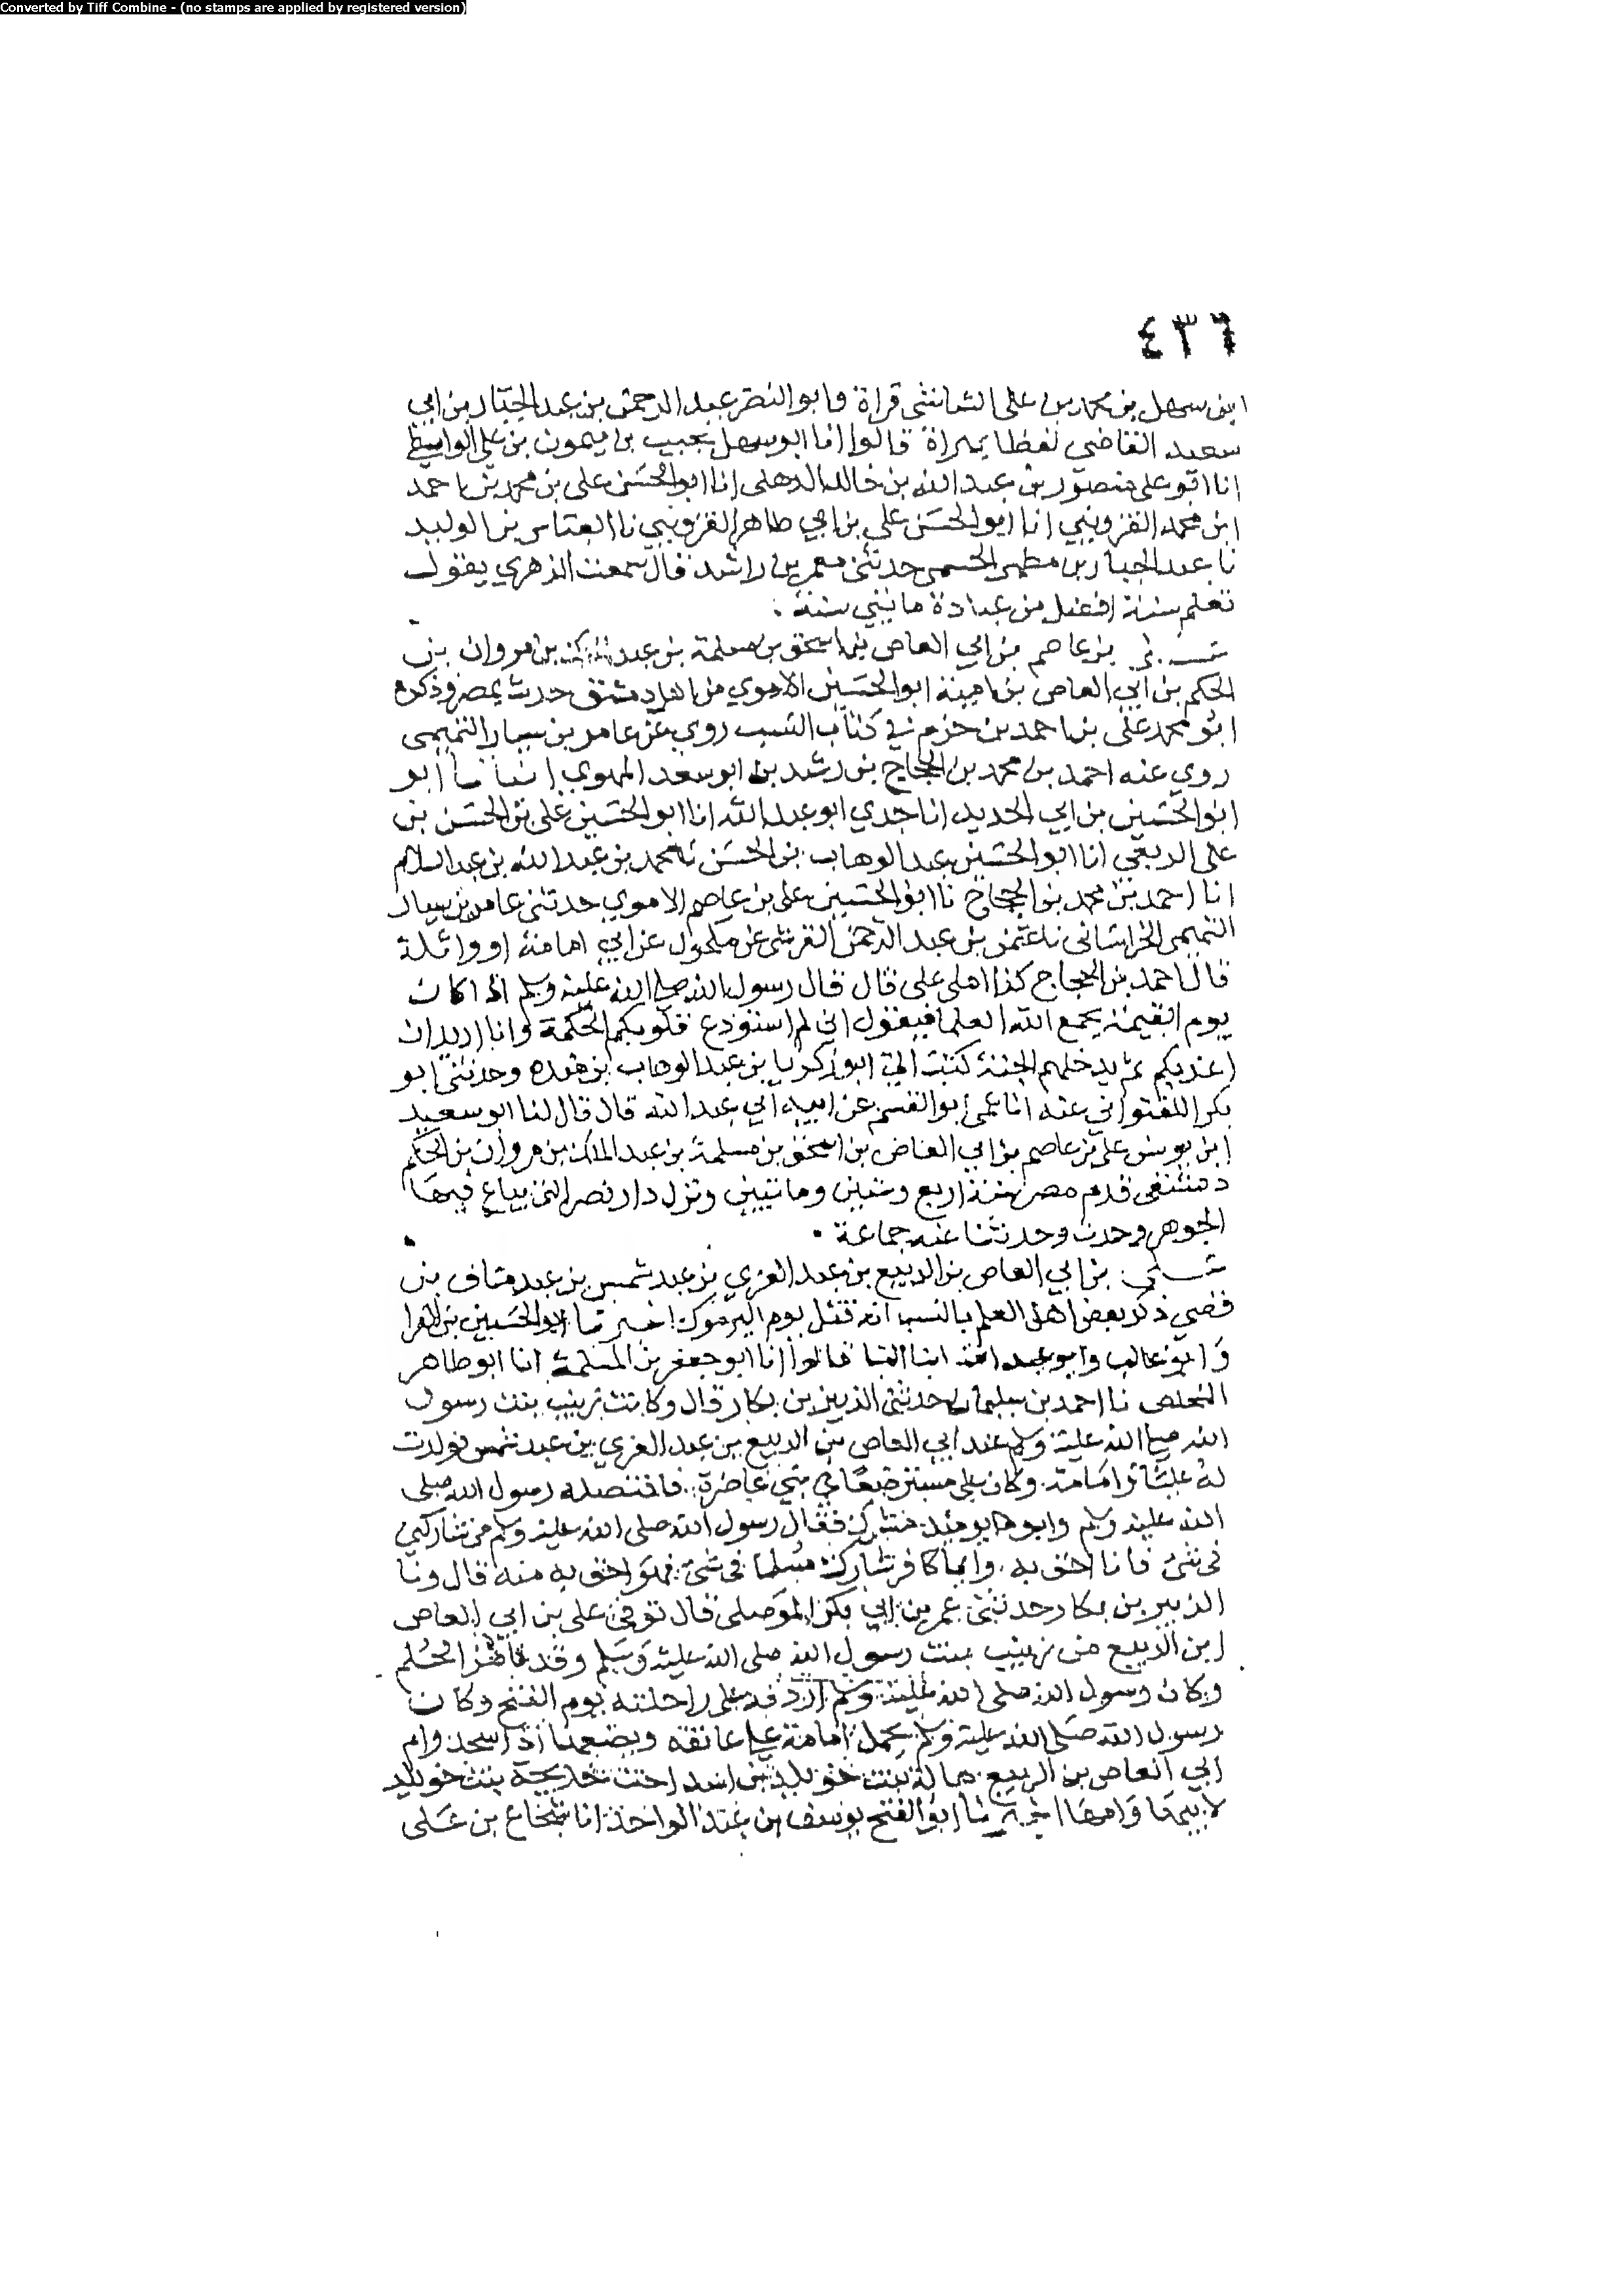 Converted by Tiff Combine - (no stamps are applied by registered version)
٤٣٦
ابن سهل بن محمد بن على الشاشى قراة وابو النضر عبد الرحمن بن عبد الجبار بن ابي
سعيد القاضي لفظا بهراة قالوا انا ابو سهل نجيب بن ميمون بن علي الواسطي
انا ابو على منصور بن عبد الله بن خالد الذهلى انا ابو الحسن على بن محمد بن احمد
ابن محمد القزويني انا ابو الحسن علي بن ابي طاهر القزويني نا العباس بن الوليد
نا عبد الجبار بن مطهر الجشمى حدثنى معمر بن راشد قال سمعت الزهري يقول
تعلم سنة افضل من عبادة مايتي سنة
بن عاصم بن ابي العاص بن اسحق بن مسلمة بن عبد الملك بن مروان بن
الحكم بن ابي العاص بن امية ابو الحسين الاموي من اهل دمشق حدث بمصر وذكره
ابو محمد على بن احمد بن حزم في كتاب النسب روي عن عامر بن سيار التميمى
روي عنه احمد بن محمد بن الحجاج بن رشدين ابو سعد المهري انبانا ابو
ابو الحسين بن ابي الحديد انا جدي ابو عبد الله انا ابو الحسين على بن الحسن بن
على الربعي انا ابو الحسين عبد الوهاب بن الحسن نا محمد بن عبد الله بن عبد السلام
انا احمد بن محمد بن الحجاج نا ابو الحسين على بن عاصم الاموي حدثنى عامر بن سيار
التميمى الخراسانى نا عثمن بن عبد الرحمن القرشى عن مكحول عن ابي امامة او واثلة
قال احمد بن الحجاج كذا املى على قال قال رسول الله صلى الله عليه وسلم اذا كان
يوم القيمة يجمع الله العلما فيقول اني لم استودع قلوبكم الحكمة وانا اريد ان
اعذبكم ثم يدخلهم الجنة كتب الي ابو زكريا بن عبد الوهاب بن منده وحدثنى ابو
بكر اللفتواني عنه انا عمى ابو القسم عن ابيه ابي عبد الله قال قال لنا ابو سعيد
ابن يونس على بن عاصم بن ابي العاص بن اسحق بن مسلمة بن عبد الملك بن مروان بن الحكم
دمشقى قدم مصر سنة اربع وستين ومايتين ونزل دار نصر التى يباع فيها
الجوهر وحدث وحدثنا عنه جماعة
على بن ابي العاص بن الربيع بن عبد العزي بن عبد شمس بن عبد مناف بن
قصي ذكر بعض اهل العلم بالنسب انه قتل يوم اليرموك اخبرنا ابو الحسين بن الفرا
وابو غالب وابو عبد الله ابنا البنا قالوا انا ابو جعفر بن المسلمة انا ابو طاهر
المخلص نا احمد بن سليمان حدثنى الزبير بن بكار قال وكانت زينب بنت رسول
الله صلى الله عليه وسلم عند ابي العاص بن الربيع بن عبد العزي بن عبد شمس فولدت
له عليا وامامة وكان على مسترضعا في بني غاضرة فافتصله رسول الله صلى
الله عليه وسلم وابوها يوميذ مشرك فقال رسول الله صلى الله عليه وسلم من شاركني
فى شئ فانا احق به وايما كافر شارك مسلما فى شئ فهو احق به منه قال ونا
الزبير بن بكار حدثنى عمر بن ابي بكر الموصلى قال توفى على بن ابي العاص
ابن الربيع من زينب بنت رسول الله صلى الله عليه وسلم وقد ناهز الحلم
وكان رسول الله صلى الله عليه وسلم اردفه على راحلته يوم الفتح وكان
رسول الله صلى الله عليه وسلم يحمل امامة على عاتقه ويضعها اذا سجد وام
ابي العاص بن الربيع هالة بنت خويلد بن اسد اخت خديجة بنت خويلد
لابيها وامها اخبرنا ابو الفتح يوسف بن عبد الواحد انا شجاع بن على